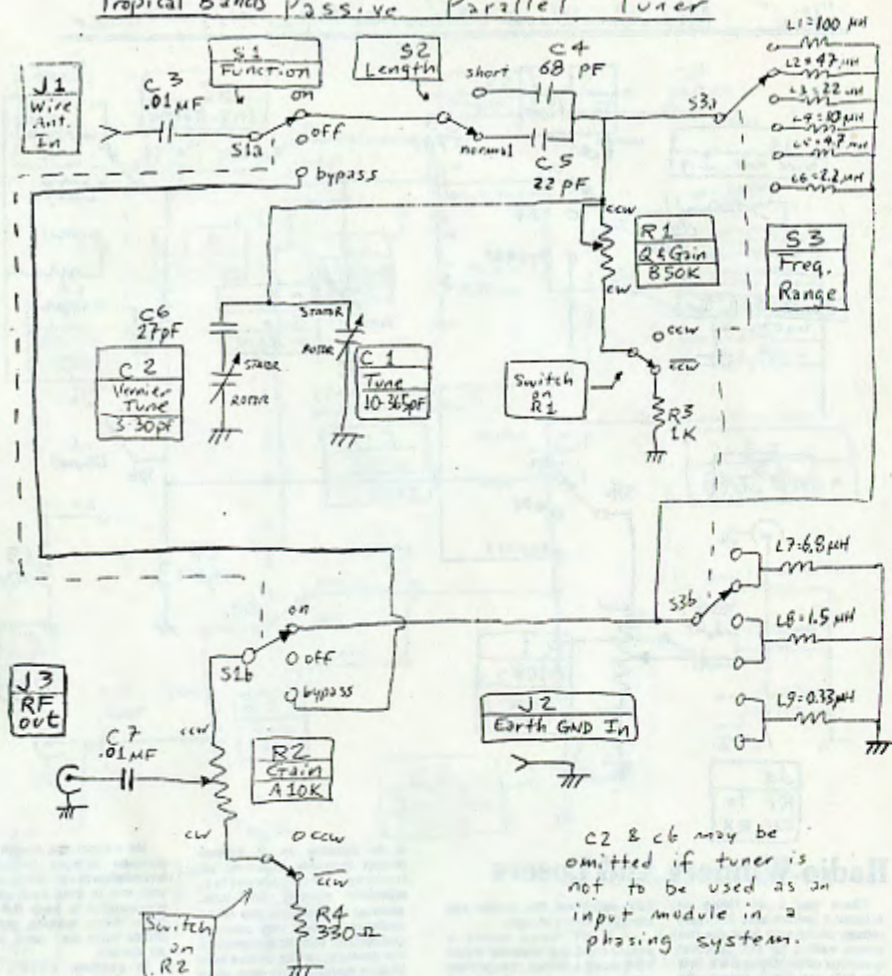 Tropical Bands Passive Parallel Tuner
J1
Wire
Ant.
In
C3
.01 µF
S1
Function
on
off
bypass
S1a
S2
Length
short
normal
C4
68 PF
C5
22 pF
S3a
L1=100 µH
L2=47 µH
L3=22 µH
L4=10 µH
L5=4.7 µH
L6=2.2 µH
S3
Freq.
Range
ccw
R1
Q & Gain
B50K
cw
ccw
ccw
Switch
on
R1
R3
1K
C6
27pF
C2
Vernier
Tune
3-30pf
STATOR
ROTOR
STATOR
ROTOR
C1
Tune
10-365pf
S3b
L7=6.8 µH
L8=1.5 µH
L9=0.33µH
on
off
bypass
S1b
J2
Earth GND In
J3
RF
out
C7
.01 µF
ccw
R2
Gain
A10K
cw
ccw
ccw
R4
330 Ω
Switch
on
R2
C2 & C6 may be
omitted if tuner is
not to be used as an
input module in a
phasing system.